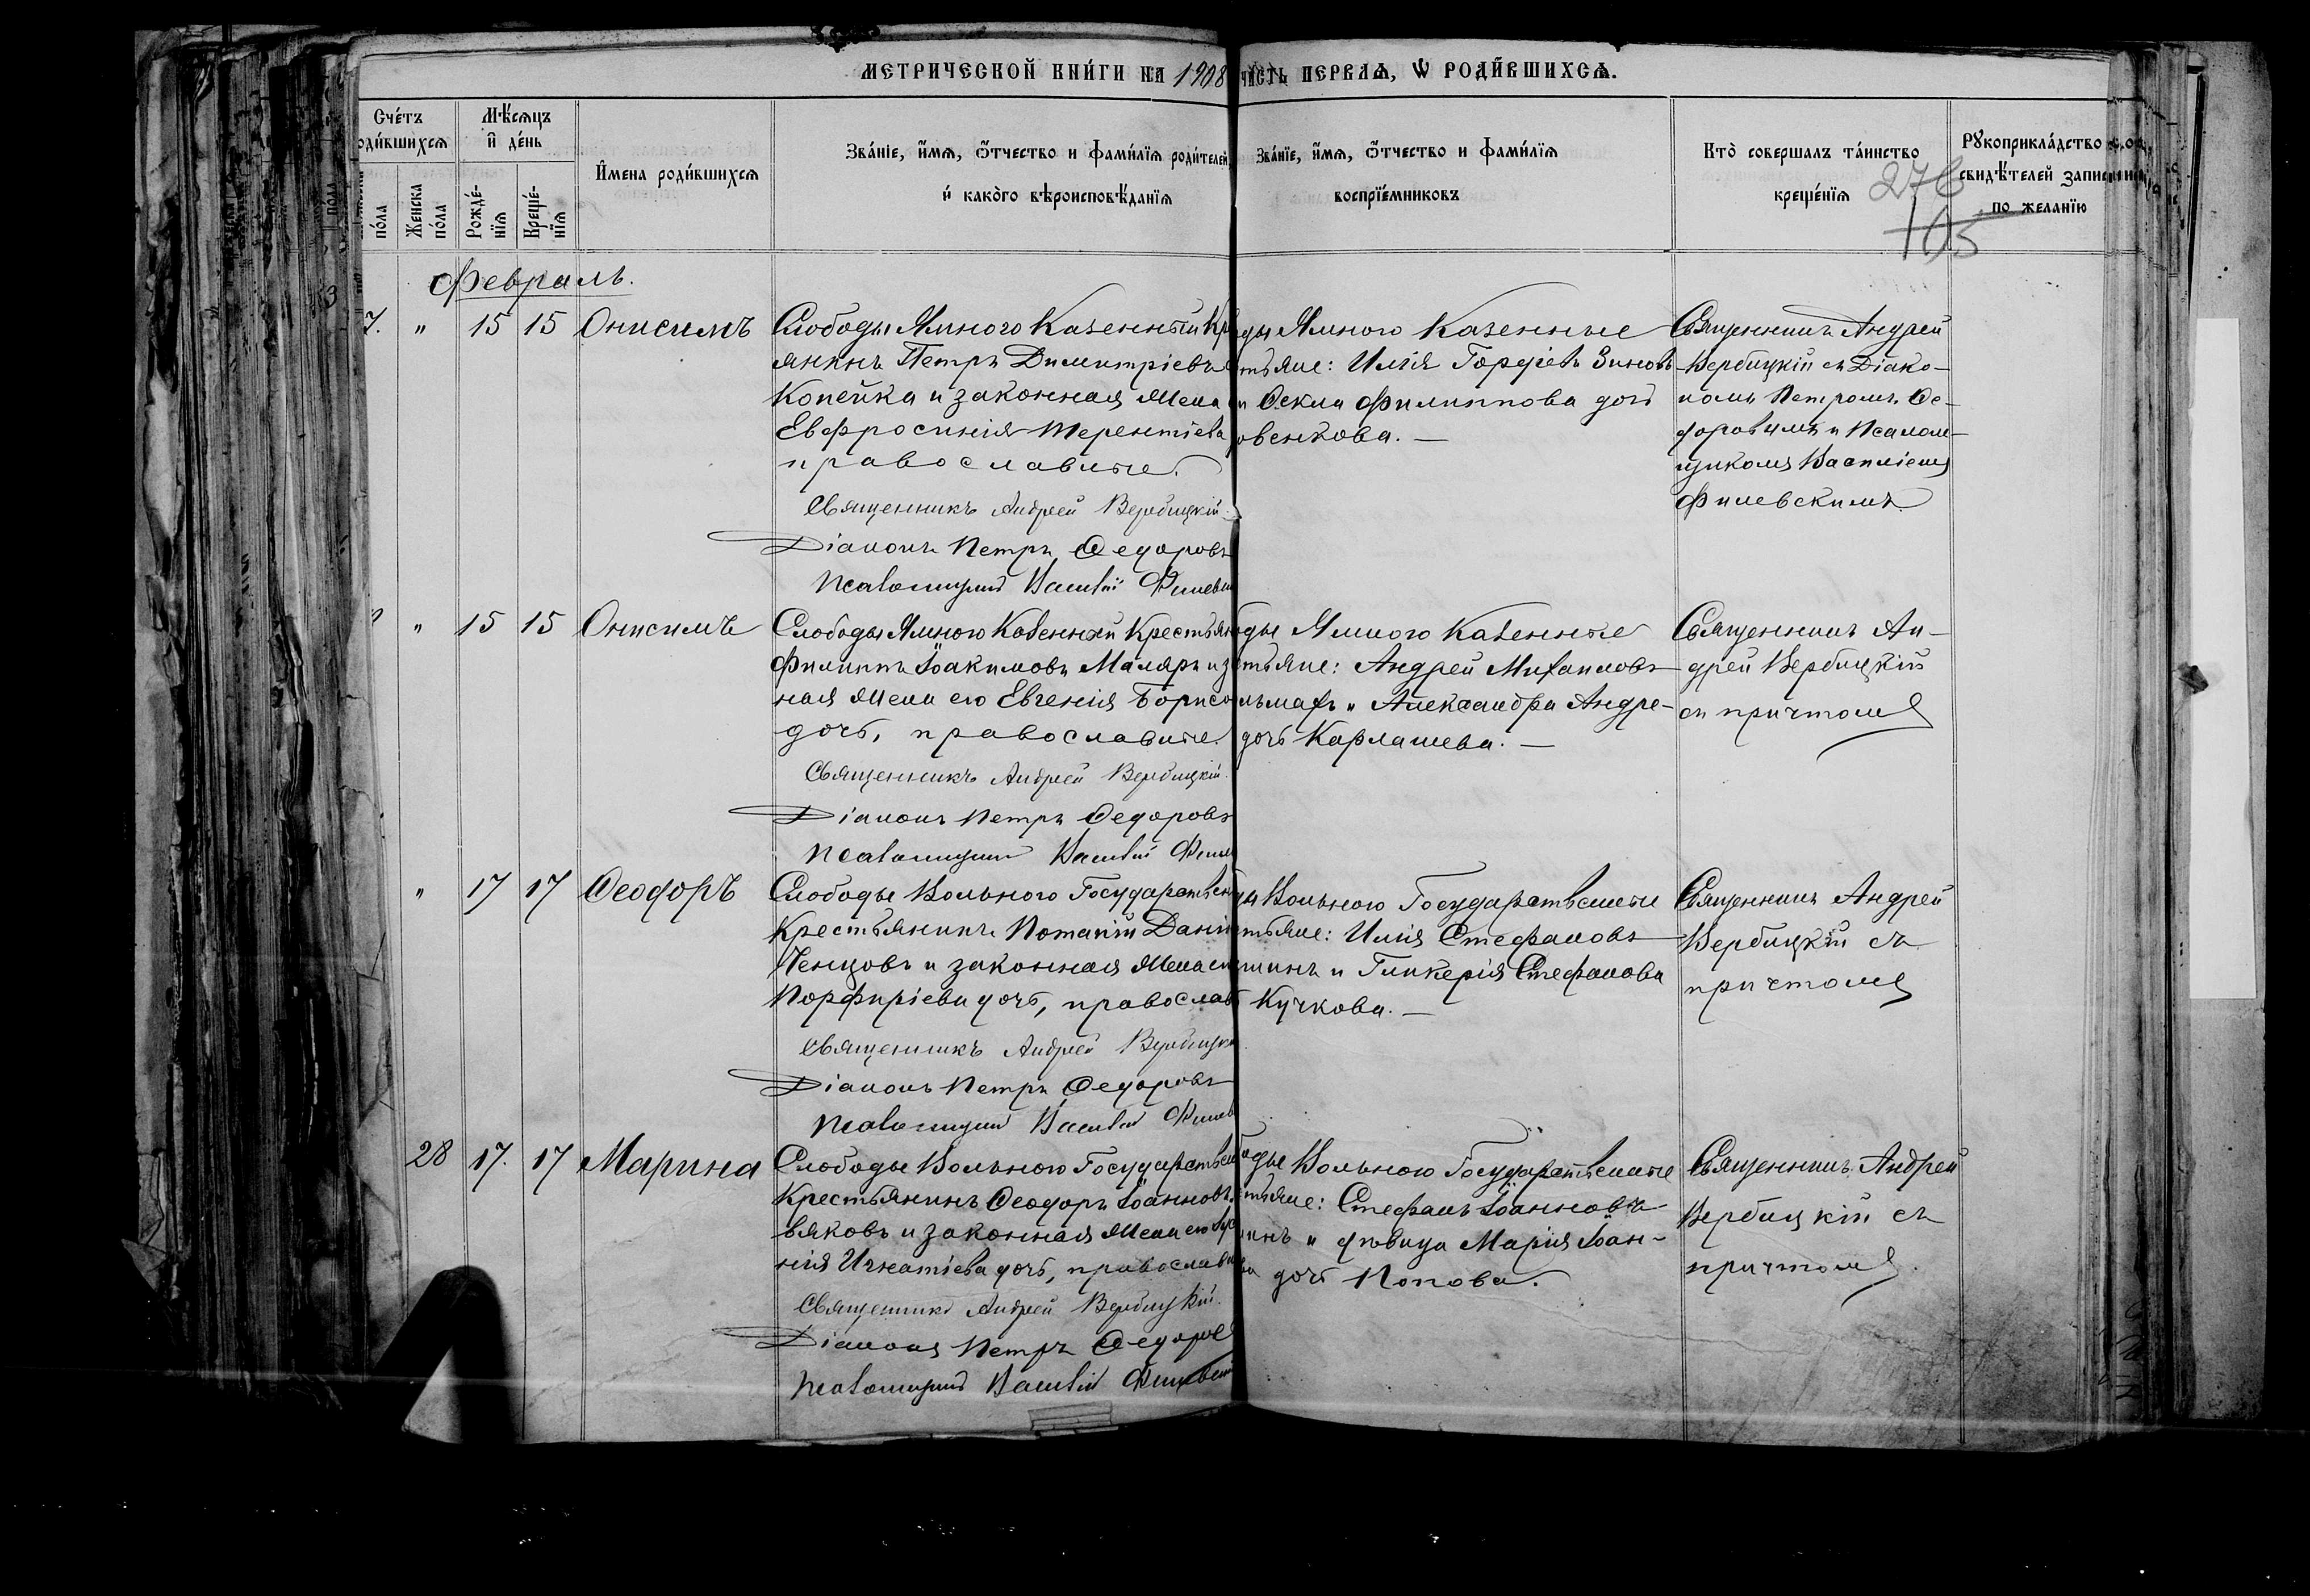 МЕТРИЧЕСКОЙ КНИ́ГИ НА 1908 ЧАСТЬ ПЕРВАѦ, Ѡ РОДИ́ВШИХСѦ.
Сче́тъ
оди́вшихсѧ
Мѣ́сѧцъ
и де́нь
И́мена роди́вшихсѧ
Зва́нїе, и́мѧ, ѻ́тчество и фами́лїѧ роди́телей
и како́гѡ вѣроисповѣ́данїѧ
Зва́нїе, и́мѧ, ѻ́тчество и фами́лїѧ
воспрїе́мниковъ
Кто̀ совершалъ та́инство
креще́нїѧ
Рꙋкоприкла́дство
свидѣ́телей записи
по желанїю
по́ла
Женска
по́ла
Рожде́-
нїѧ
Креще́-
нїѧ
276
105
Февраль.
7. " 15 15 Онисимъ
Слободы Ямного Казенный Кр
янинъ Петръ Димитріевъ
Копейка и законная жена
Евфросинія Терентіева
православные.
Священникъ Андрей Вербицкій.
Діаконъ Петръ Ѳедоровъ
Псаломщикъ Василій Филевск
ды Ямного Казенные
тьяне: Илія Гордіевъ Зиновь
и Ѳекла Филиппова дочь
овенкова. —
Священникъ Андрей
Вербицкій съ Діако-
номъ Петромъ Ѳе-
доровымъ и Псалом-
щикомъ Василіемъ
Филевскимъ
" 15 15 Онисимъ
Слободы Ямного Казенный Крестьян
Филиппъ Іоакимовъ Маляръ и з
ная жена его Евгенія Борисо
дочь, православные.
Священникъ Андрей Вербицкій.
Діаконъ Петръ Ѳедоровъ
Псаломщикъ Василій Филев
оды Ямного Казенные
стьяне: Андрей Михаиловъ
льмахъ и Александра Андре-
дочь Карлашева. —
Священникъ Ан-
дрей Вербицкій
съ причтомъ
" 17 17 Ѳеодоръ
Слободы Вольного Государствен
Крестьянинъ Потапій Дани
Ченцовъ и законная жена его
Порфиріева дочь, православ
Священникъ Андрей Вербицкі
Діаконъ Петръ Ѳедоровъ
Псаломщикъ Василій Филев
ды Вольного Государственные
тьяне: Илія Стефановъ
шинъ и Гликерія Стефанова
Кучкова. —
Священникъ Андрей
Вербицкій съ
причтомъ
28 17. 17 Марина
Слободы Вольного Государствен
Крестьянинъ Ѳеодоръ Іоанновъ
вяковъ и законная жена его
нія Игнатіева дочь, православн
Священникъ Андрей Вербицкій.
Діаконъ Петръ Ѳедоровъ
Псаломщикъ Василій Филевскій
оды Вольного Государственные
стьяне: Стефанъ Іоанновъ
инъ и дѣвица Марія Іоан-
ва дочь Попова.
Священникъ Андрей
Вербицкій съ
причтомъ.